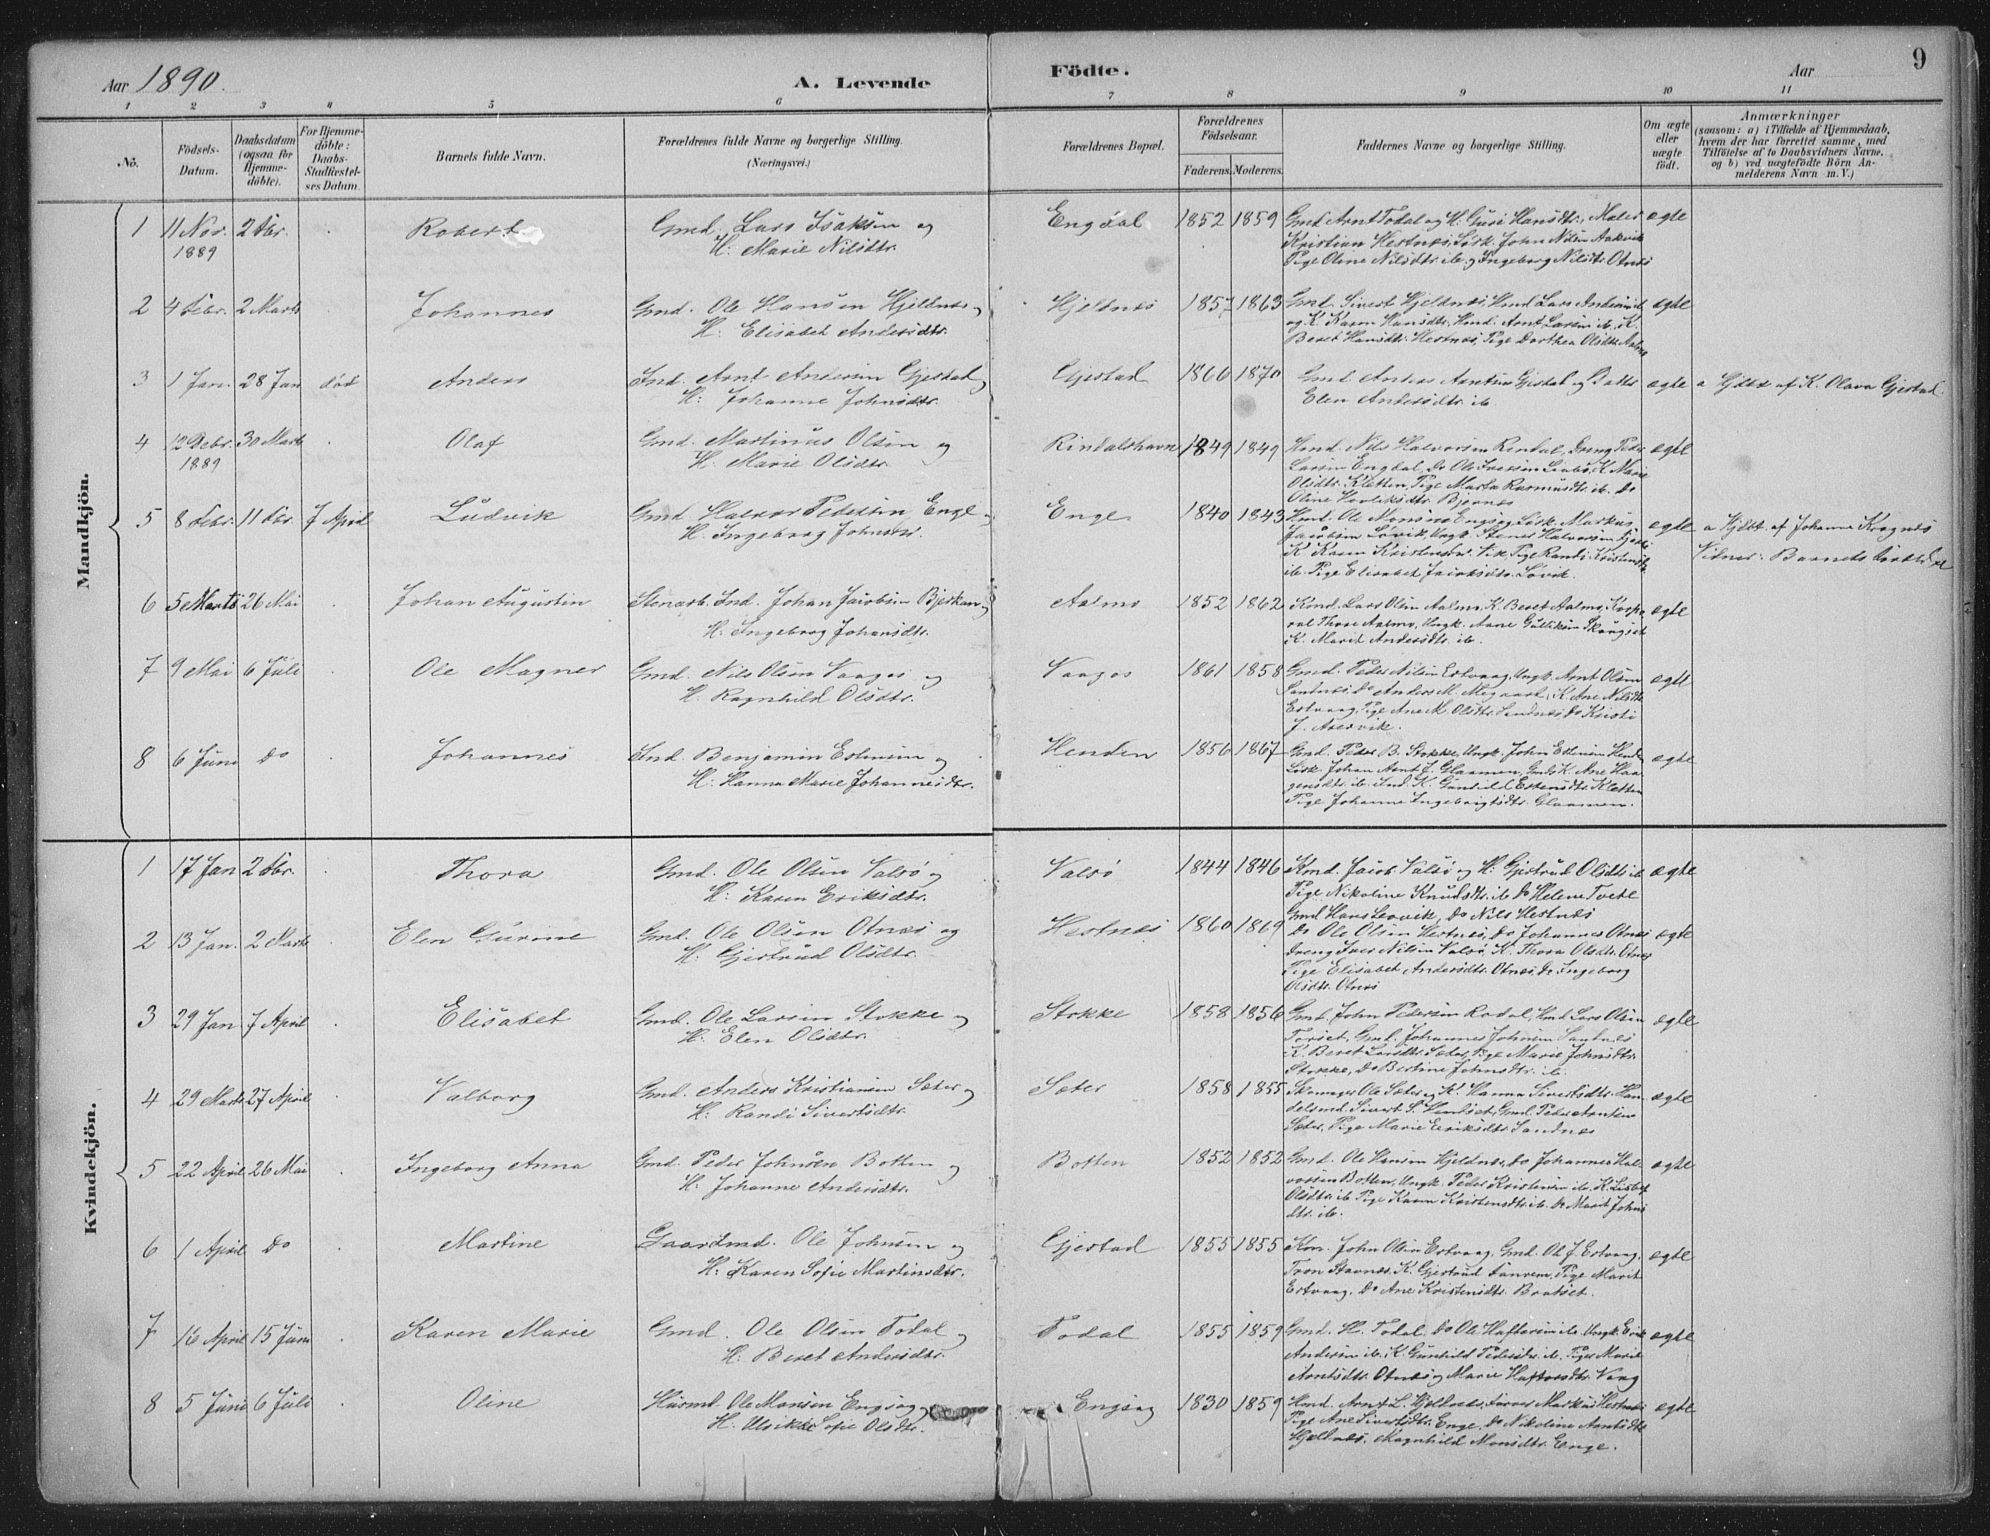 9
Aar 1890.
A. Levende
Födte.
Aar
1 2 3 4 5 6 7 8 9 10 11
No.
Födsels-Datum.
Daabsdatum (ogsaa for Hjemme-döbte).
For Hjemme-döbte: Daabs-Stadfæstel-ses Datum.
Barnets fulde Navn.
Forældrenes fulde Navne og borgerlige Stilling. (Næringsvei.)
Forældrenes Bopæl.
Forældrenes Födselsaar.
Faderens. Moderens.
Faddernes Navne og borgerlige Stilling.
Om ægte eller uægte födt.
Anmærkninger
(saasom: a) i Tilfælde af Hjemmedaab,
hvem der har forrettet samme, med
Tilföielse af to Daabsvidners Navne,
og b) ved uægtefödte Börn An-
melderens Navn m. V.)
Mandkjön.
1 11 Nov. 1889 2 Fbr. Robert Gmd. Lars Isaksen og
H. Marie Nilsdtr. Engdal 1852 1859 Gmd. Arnt Todal og H. Guri Hansdtr., Maler
Kristian Hestnes, Losk. John Nilsen Aakvik
Pige Oline Nilsdtr. ib. og Ingeborg Nilsdtr. Otnes
ægte
2 4 Febr. 2 Marts Johannes Gmd. Ole Hansen Hjeldnes og
H. Elisabet Andersdtr. Hjeldnes 1857 1863 Gmd. Sivert Hjeldnes, Hmd. Lars Andersen ib.
og K. Karen Hansdtr., Hmd. Arnt Larsen ib., K.
Beret Hansdtr. Hestnes, Pige Dorthea Olsdtr. Aalmo
ægte
3 1 Jan. 28 Jan död Anders Ind. Arnt Andersen Gjestad og
H. Johanne Johnsdtr. Gjestad 1866 1870 Gmd. Anders Arntsen Gjestad og Datter
Elen Andersdtr. ib.
ægte a Hjdbt af K. Olava Gjestad
4 12 Debr. 1889 30 Marts Olaf Gmd. Martinus Olsen og
H. Marie Olsdtr. Rindalshavn 1849 1849 Hmd. Nils Halvorsen Rindal, Dreng Peder
Larsen Engdal, Do Ole Iversen, K. Marie
Olsdtr. Kletten, Pige Marta Rasmusdtr. ib. Do
Oline Bjørnes
ægte
5 8 Febr. 11 Fbr. 7 April Ludvik Gmd. Halvor Pedersen Enge og
H. Ingeborg Johnsdtr. Enge 1840 1843 Hmd. Ole Monsen Engsøg, Losk. Markus
Jacobsen Lövik, Ungk. Stener Halvorsen
K. Karen Kristensdtr. Vik, Pige Randi Kristensdtr.
ib. Pige Elisabet Jacobsdtr. Lövik.
ægte a Hjdbt. af Johanne Krognes
Vidner: Barnets
6 5 Marts 26 Mai Johan Augustin Stenarb. Ind. Johan Jacobsen Bjerkan og
H. Ingeborg Johansdtr. Aalmo 1852 1862 Kmd. Lars Olsen Aalmo, K. Beret Aalmo, Korpo-
ral Thore Aalmo, Ungk. Arne Gulliksen Skougset
K. Marit Andersdtr. ib.
ægte
7 9 Mai 6 Juli Ole Magner Gmd. Nils Olsen Vaagos og
H. Ragnhild Olsdtr. Vaagos 1861 1858 Gmd. Peder Nilsen Ertvaag, Ungk. Arnt Olsen
Sandnes Do Anders M. Megaard, K. Ane Nilsdtr.
Ertvaag, Pige Ane M. Olsdtr. Sandnes Do Kristi
J. Aresvik.
ægte
8 6 Juni Do Johannes Ind. Benjamin Estensen og
H. Hanna Marie Johannesdtr. Henden 1856 1867 Gmd. Peder B. Stokke, Ungk. John Estensen Henden
Losk. Johan Arnt J. Glaamen, Gmds K. Ane Haa-
gensdtr. ib. Ind. K. Gunhild Estensdtr. Kletten
Pige Johanne Ingebrigtsdtr. Glaamen.
ægte
Kvindekjön.
1 17 Jan 2 Fbr. Thora Gmd. Ole Olsen Valsö og
H. Karen Eriksdtr. Valsö 1844 1846 Kmd. Jacob Valsö og H. Gjertrud Olsdtr. ib
Pige Nikoline Knudsdtr. ib Do Helene Tvete
Gmd Hans Leervik, Do Nils Hestnes
ægte
2 13 Jan. 2 Marts Elen Gurine Gmd. Ole Olsen Otnes og
H. Gjertrud Olsdtr. Hestnes 1860 1869 Do Ole Olsen Hestnes, Do Johannes Otnes
Dreng Iver Nilsen Valsö, K. Thora Olsdtr. Otnes
Pige Elisabet Andersdtr. Otnes, Do Ingeborg
Olsdtr. Otnes
ægte
3 29 Jan 7 April Elisabet Gmd. Ole Larsen Stokke og
H. Elen Olsdtr. Stokke 1858 1856 Gmd. John Pedersen Rodal, Hmd Lars Olsen
Torset, Gmd. Johannes Johnsen Sandnes
K. Beret Larsdtr. Sæter, Pige Marie Johnsdtr.
Stokke, Do Bertine Johnsdtr. ib.
ægte
4 29 Marts 27 April Valborg Gmd. Anders Kristiansen Sæter og
H. Randi Sivertsdtr. Sæter 1858 1855 Skomager Ole Sæter og K. Hanna Sivertsdtr. Han-
delsmd. Sivert S. Vendset, Gmd. Peder Arntsen
Sæter, Pige Marie Eriksdtr. Sandnes
ægte
5 22 April 26 Mai Ingeborg Anna Gmd. Peder Johnsen Botten og
H. Johanne Andersdtr. Botten 1852 1852 Gmd. Ole Hansen Hjeldnes, Do Johannes Hal-
vorsen Botten, Ungk. Peder Kristensen ib. K. Lisbet
Olsdtr. ib. Pige Karen Kristensdtr. ib. Do Marit Johns
dtr. ib.
ægte
6 1 April Do Martine Gaardmd. Ole Johnsen og
H. Karen Sofie Martinsdtr. Gjestad 1855 1855 Kmd. John Olsen Ertvaag, Gmd. Ole J. Ertvaag,
Tron Stavnes, K. Gjertrud Fanrem, Pige Marit
Ertvaag, Do Ane Kristensdtr. Bratset.
ægte
7 16 April 15 Juni Karen Marie Gmd. Ole Olsen Todal og
H. Beret Andersdtr. Todal 1855 1859 Gmd. H. Todal, Do Ole Haftorsen ib. Ungk. Erik
Andersen ib. K. Gunhild Pedersdtr. ib. Piger Marit
Arntsdtr. Otnes og Marie Haftorsdtr. Vaag
ægte
8 5 Juni 6 Juli Oline Husmd. Ole Monsen Engsøg og
H. Ulrikke Sofie Olsdtr. Engsøg 1830 1859 Hmd. Arnt L. Hjeldnes, Farver Markus Hestnes
Pige Ane Sivertsdtr. Enge, Do Nikoline Arntsdtr.
Hjeldnes, Magnhild Monsdtr. Enge.
ægte